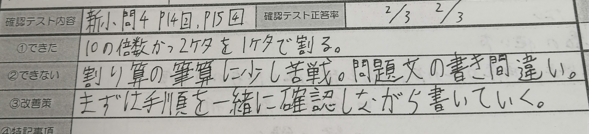 確認テスト内容 新小問4 P14②,P15④ 確認テスト正答率 2/3 2/3
①できた 10の倍数かつ2ケタを1ケタで割る。
②できない 割り算の筆算に少し苦戦。問題文の書き間違い。
③改善策 まずは手順を一緒に確認しながら書いていく。
④特記事項